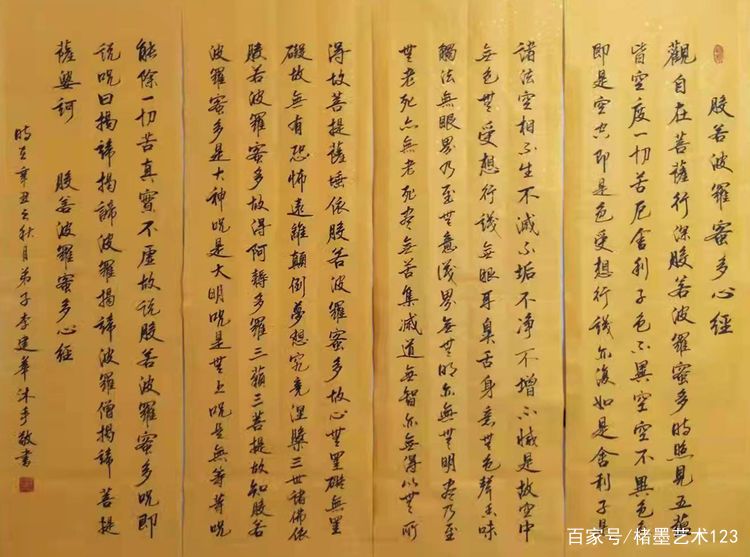 般若波羅蜜多心經
觀自在菩薩行深般若波羅蜜多時照見五蘊
皆空度一切苦厄舍利子色不異空空不異色色
即是空空即是色受想行識亦復如是舍利子是
諸法空相不生不滅不垢不净不增不減是故空中
無色無受想行識無眼耳鼻舌身意無色聲香味
觸法無眼界乃至無意識界無無明亦無無明盡乃至
無老死亦無老死盡無苦集滅道無智亦無得以無所
得故菩提薩埵依般若波羅蜜多故心無罣礙無罣
礙故無有恐怖遠離顛倒夢想究竟涅槃三世諸佛依
般若波羅蜜多故得阿耨多羅三藐三菩提故知般若
波羅蜜多是大神咒是大明咒是無上咒是無等等咒
能除一切苦真實不虛故説般若波羅蜜多咒即
説咒曰揭諦揭諦波羅揭諦波羅僧揭諦菩提
薩婆訶 般若波羅蜜多心經
時在辛丑之秋月弟子李建華沐手敬書
百家号/楮墨艺术123